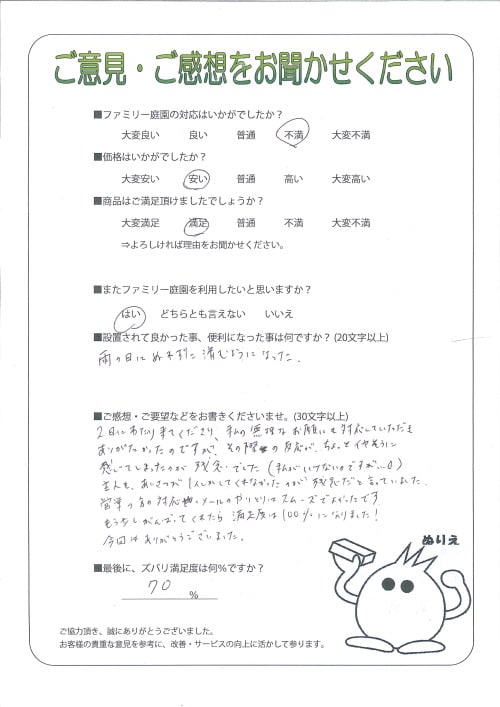 ご意見・ご感想をお聞かせください
■ファミリー庭園の対応はいかがでしたか？
大変良い 良い 普通 不満 大変不満
■価格はいかがでしたか？
大変安い 安い 普通 高い 大変高い
■商品はご満足頂けましたでしょうか？
大変満足 満足 普通 不満 大変不満
⇒よろしければ理由をお聞かせください。
■またファミリー庭園を利用したいと思いますか？
はい どちらとも言えない いいえ
■設置されて良かった事、便利になった事は何ですか？(20文字以上)
雨の日にぬれずに済むようになった。
■ご感想・ご要望などをお書きくださいませ。(30文字以上)
2日にわたり来てくださり、私の無理なお願いにも対応していただき
ありがたかったのですが、その際の反応が、ちょっとイヤそうに
感じてしまったのが残念でした(私がいけないのですが…)
主人も、あいさつが1人しかしてくれなかったのが残念だと言っていました。
営業の方の対応やメールのやりとりはスムーズでよかったです
もう少しがんばってくれたら満足度は100%になりました!
今回はありがとうございました。
■最後に、ズバリ満足度は何％ですか？
70
％
ぬりえ
ご協力頂き、誠にありがとうございました。
お客様の貴重な意見を参考に、改善・サービスの向上に活かして参ります。